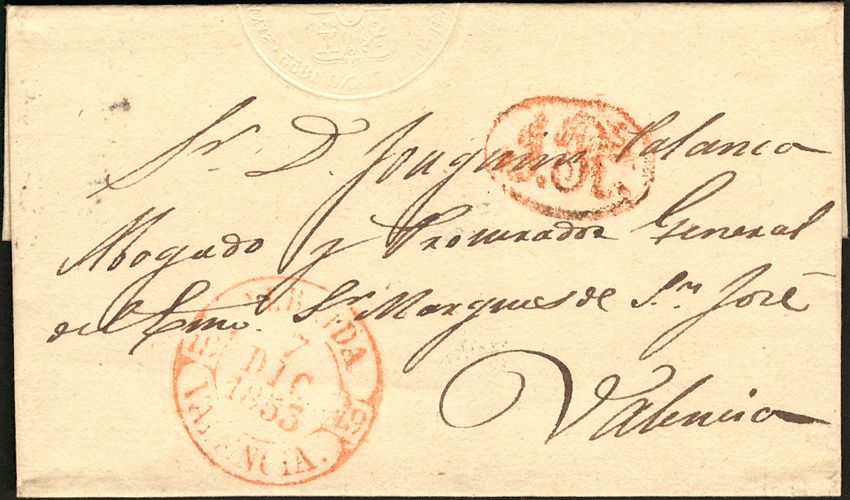 Sr. D. Joaquin Catanca
Abogado y Procurador General
del Emo. Sr. Marques de Sn. José
Valencia
7
DIC
1853
VALENCIA.